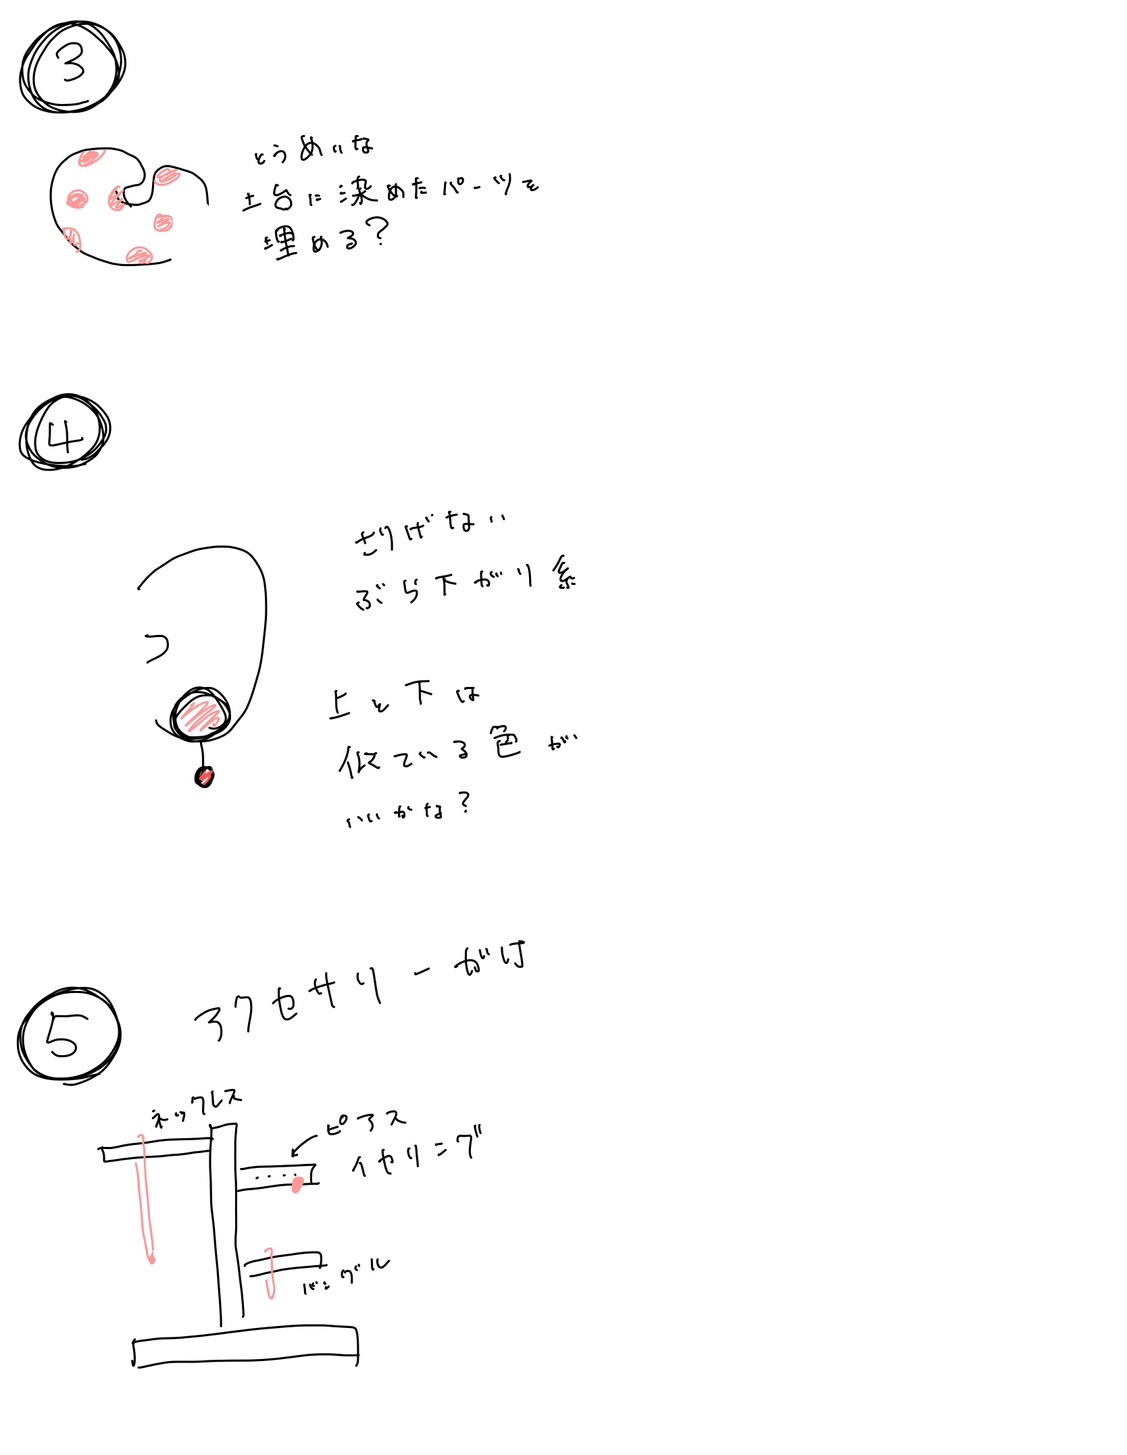 3
とうめいな
土台に染めたパーツを
埋める?
4
さりげない
ぶら下がり系
上と下は
似ている色が
いいかな?
5
アクセサリーがけ
ネックレス
ピアス
イヤリング
バングル